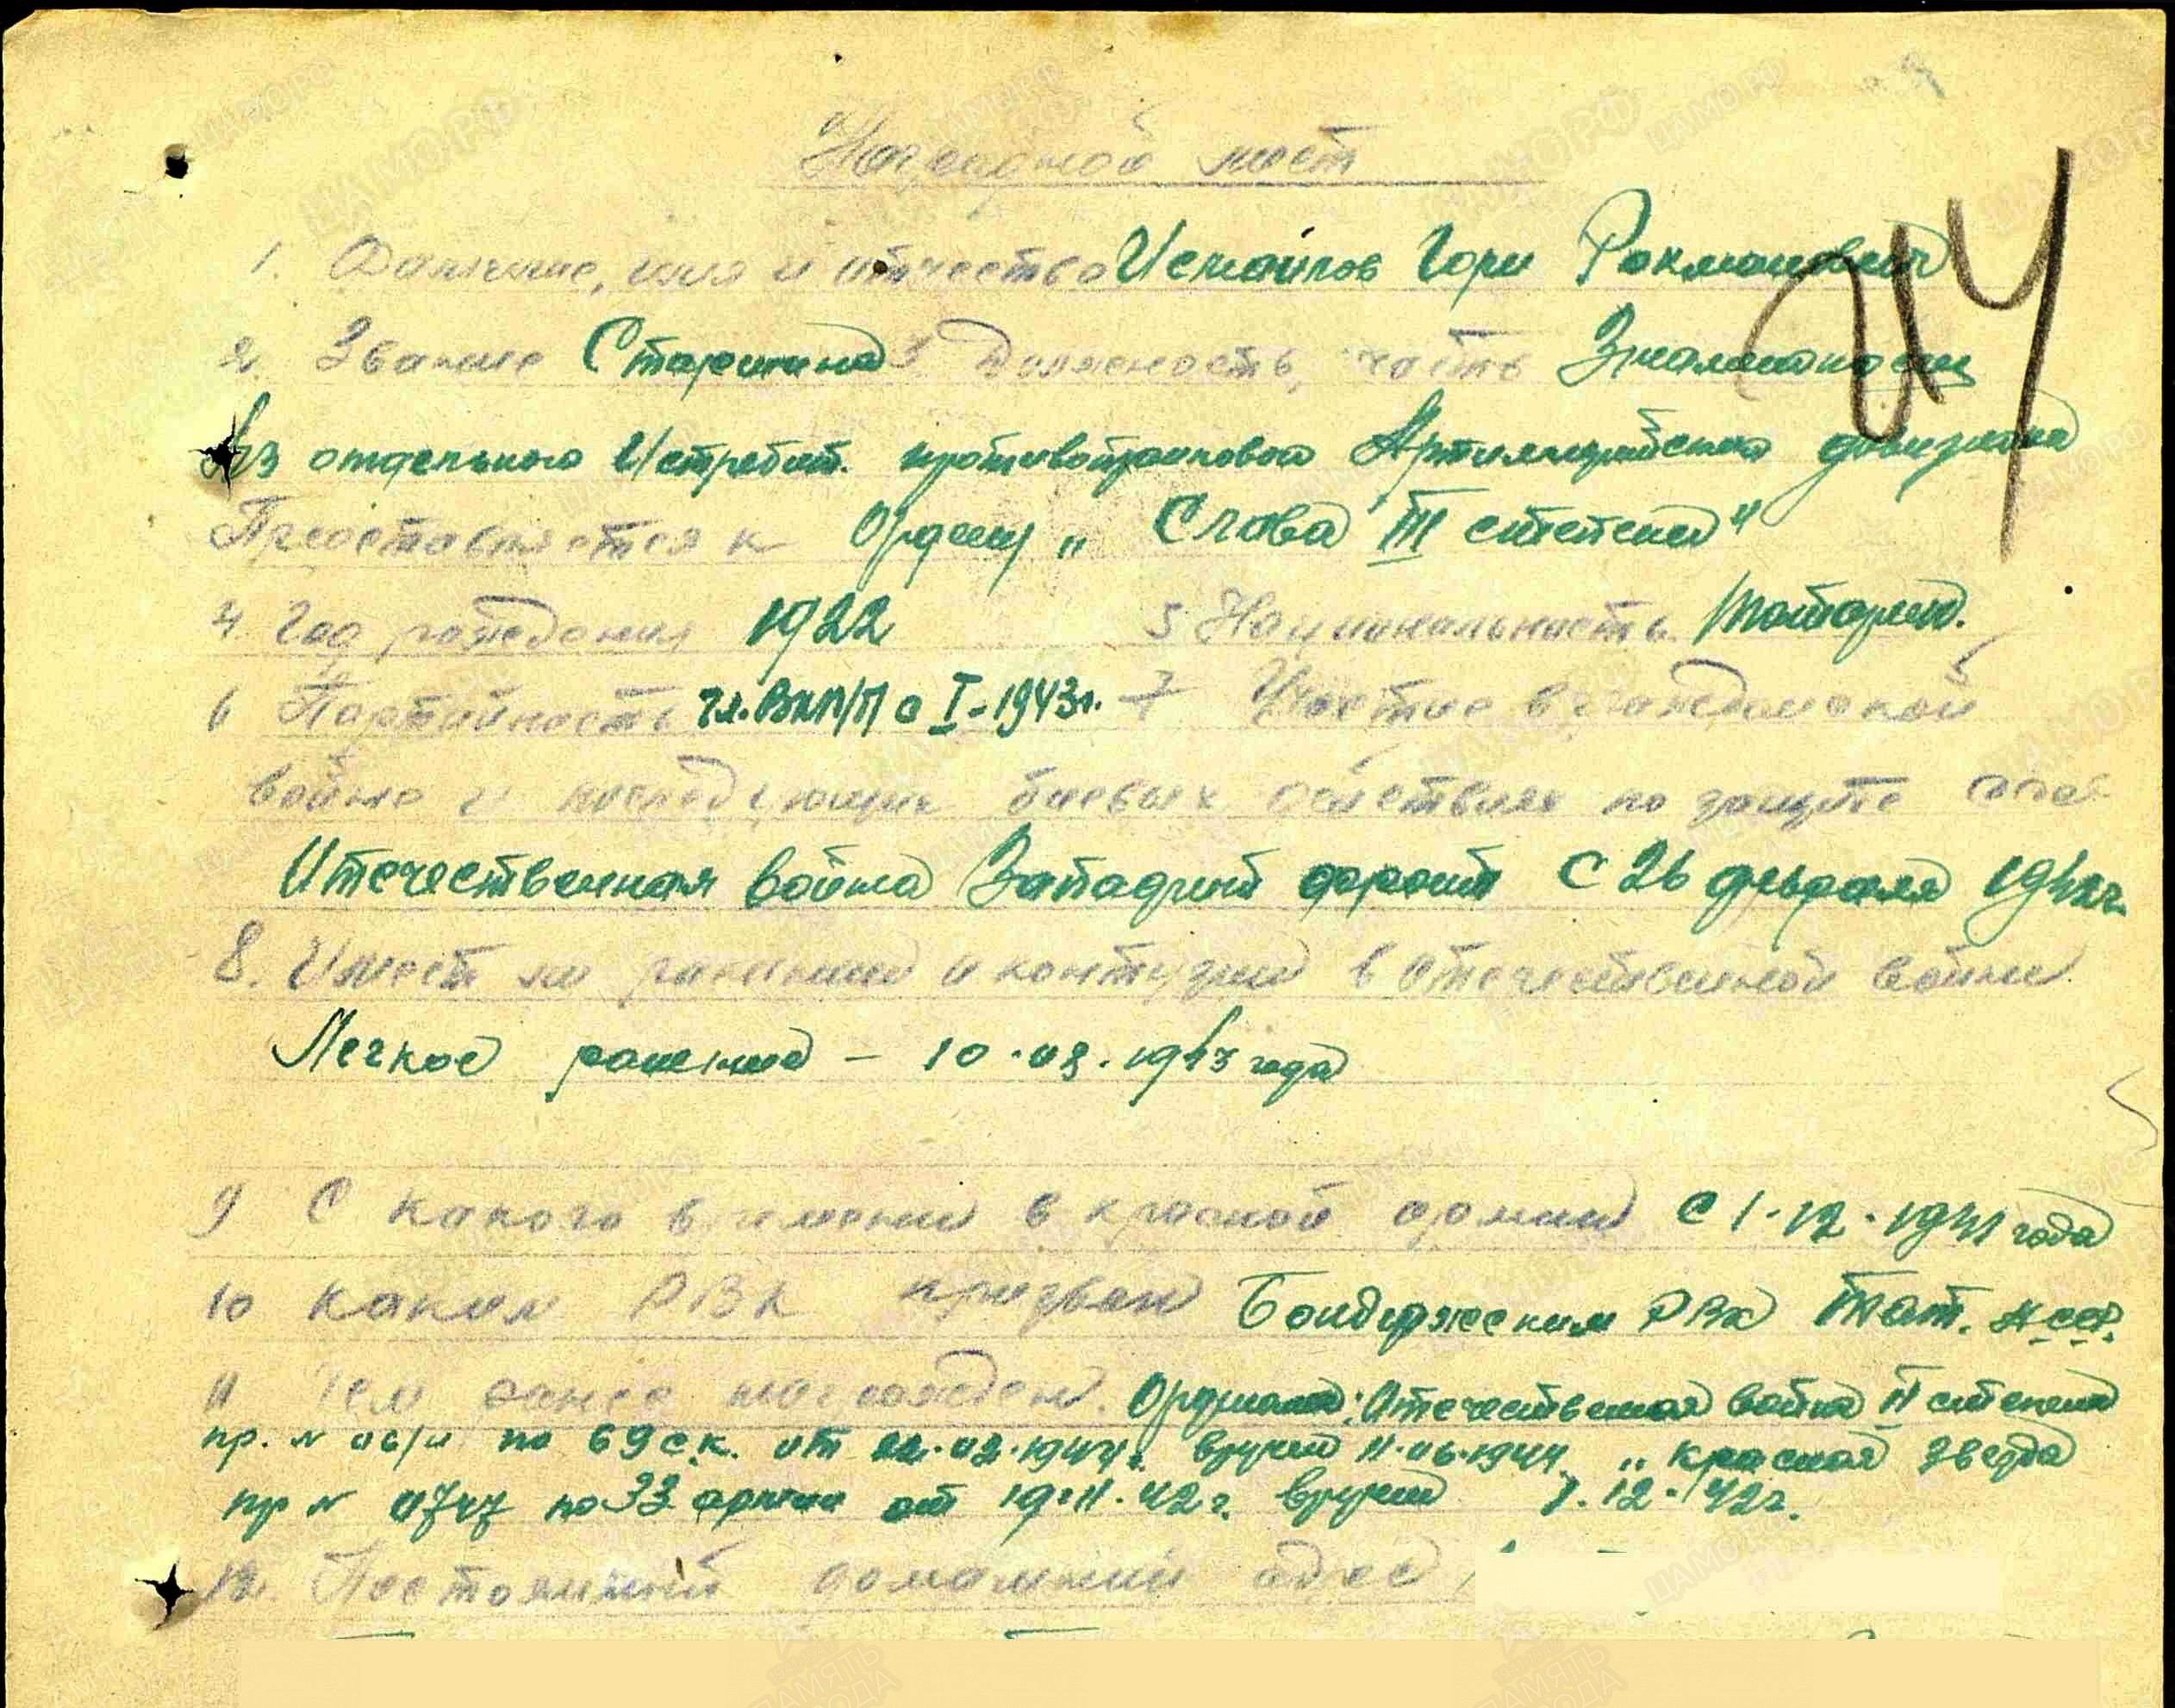 Наградной лист
1. Фамилие, имя и отчество Исмаилов Гори Рахманович
2. Звание Старшина 3 Должность, часть Знаменосец
отдельного Истребит. противотанкового Артиллерийского дивизиона
Представляется к Ордену „Слава III степени"
4. Год рождения 1922 5 Национальность Татарин.
6 Партийность чл. ВКП/П с I-1943г. 7 Участие в гражданской
войне и последующих боевых действиях по защите ссср
Отечественная война Западный фронт С 26 февраля 1942г.
8. Имеет ли ранения и контузии в отечественной войне
Легкое ранение - 10.08.1943 года
9 С какого времени в красной армии с 1.12.1941 года
10 Каким РВК призван Бондюжеским РВК Тат. АССР.
11 Чем ранее награжден. Орденами: Отечественная война II степени
пр. N 06/н по 69 с.к. от 22.02.1944г. вручен 11.06.1944 „красная звезда
пр N 0747 по 33 армии от 19.11.42г. вручен 7.12.42г.
12. Постоянный домашний адрес
24